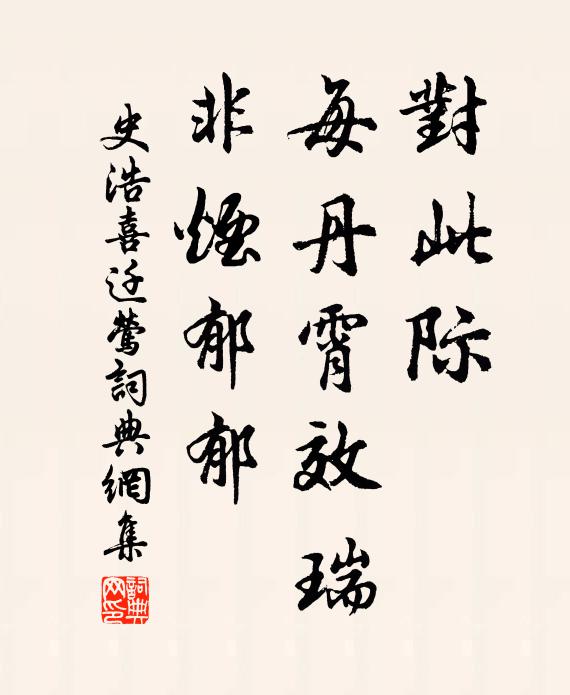 對此际
每丹霄效瑞
非煙郁郁
史浩喜迁鶯詞典網集
詞典网印